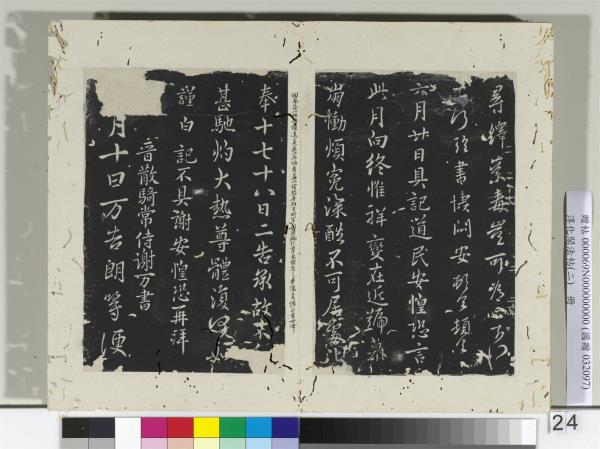 尋繹荼毒豈可為心奈何
臨書悽悶安頓首頓首
六月廿日具記道民安惶恐言
此月向終惟祥變在近號慕
崩慟煩冤深酷不可居處比
奉十七十八日二告承故不
甚馳灼大熱尊體復何
謹白記不具謝安惶恐再拜
晉散騎常侍謝万書
月十日万告朗等便
贈帖 000069N000000000 (國贈 032097)
淳化閣法帖(二) 冊
24